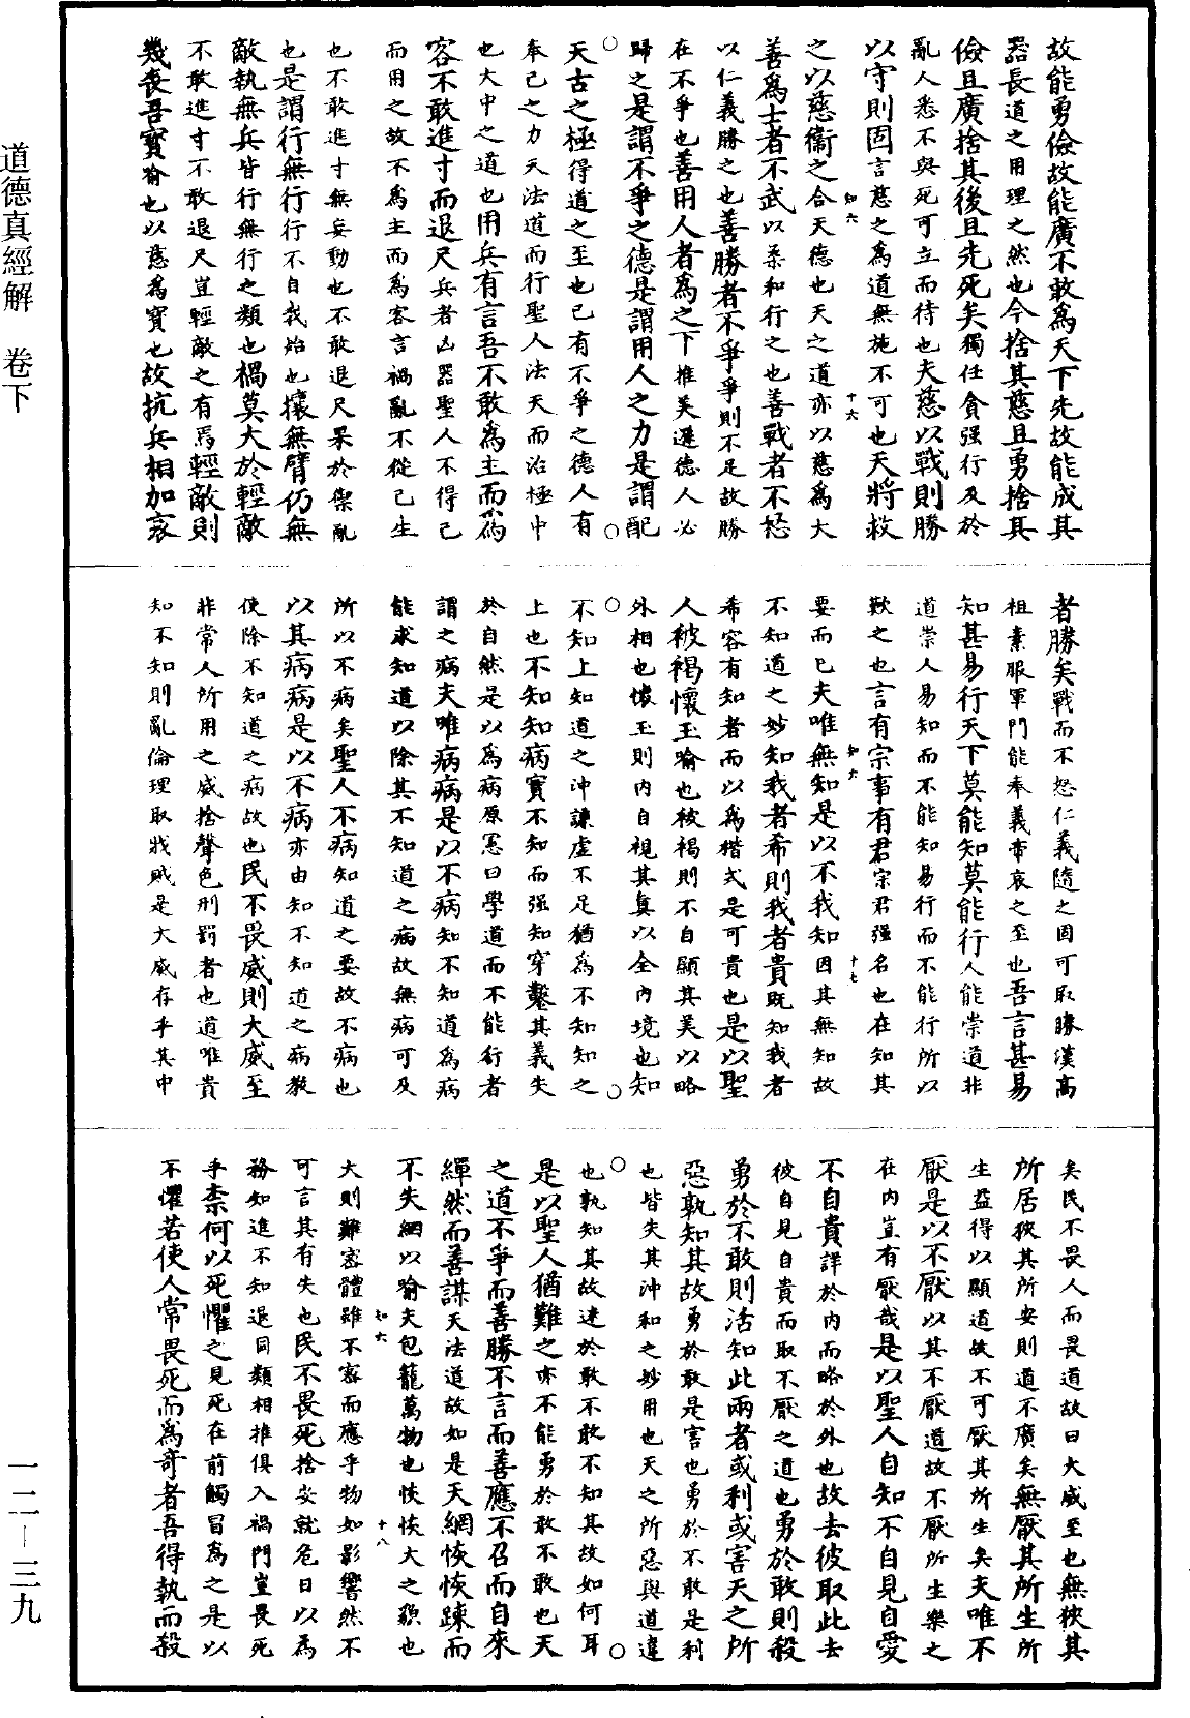 道德真經解　卷下
一二－三九
故能勇儉故能廣不敢爲天下先故能成其
器長道之用理之然也今捨其慈且勇捨其
儉且廣捨其後且先死矣獨任貪强行及於
亂人悉不與死可立而待也夫慈以戰則勝
以守則固言慈之爲道無施不可也天將救
之以慈衞之合天德也天之道亦以慈爲大
善爲士者不武以柔和行之也善戰者不怒
以仁義勝之也善勝者不爭爭則不足故勝
在不爭也善用人者爲之下推美遜德人必
歸之是謂不爭之德是謂用人之力是謂配
天古之極得道之至也已有不爭之德人有
奉己之力天法道而行聖人法天而治極中
也大中之道也用兵有言吾不敢爲主而爲
客不敢進寸而退尺兵者凶器聖人不得已
而用之故不爲主而爲客言禍亂不從己生
也不敢進寸無妄動也不敢退尺果於禦亂
也是謂行無行行不自我始也攘無臂仍無
敵執無兵皆行無行之類也禍莫大於輕敵
不敢進寸不敢退尺豈輕敵之有焉輕敵則
幾喪吾寶喻也以慈爲寶也故抗兵相加哀
者勝矣戰而不怒仁義隨之固可取勝漢高
祖素服軍門能奉義帝哀之至也吾言甚易
知甚易行天下莫能知莫能行人能崇道非
道崇人易知而不能知易行而不能行所以
歎之也言有宗事有君宗君强名也在知其
要而已夫唯無知是以不我知因其無知故
不知道之妙知我者希則我者貴既知我者
希容有知者而以爲楷式是可貴也是以聖
人被褐懷玉喻也被褐則不自顯其美以略
外相也懷玉則內自視其真以全內境也知
不知上知道之沖謙虛不足猶爲不知知之
上也不知知病實不知而强知穿鑿其義失
於自然是以爲病原憲曰學道而不能行者
謂之病夫唯病病是以不病知不知道爲病
能求知道以除其不知道之病故無病可及
所以不病矣聖人不病知道之要故不病也
以其病病是以不病亦由知不知道之病教
使除不知道之病故也民不畏威則大威至
非常人所用之威捨聲色刑罰者也道唯貴
知不知則亂倫理取戕賊是大威存乎其中
矣民不畏人而畏道故曰大威至也無狹其
所居狹其所安則道不廣矣無厭其所生所
生益得以顯道故不可厭其所生矣夫唯不
厭是以不厭以其不厭道故不厭所生樂之
在內豈有厭哉是以聖人自知不自見自愛
不自貴詳於內而略於外也故去彼取此去
彼自見自貴而取不厭之道也勇於敢則殺
勇於不敢則活知此兩者或利或害天之所
惡孰知其故勇於敢是害也勇於不敢是利
也皆失其沖和之妙用也天之所惡與道違
也孰知其故達於敢不敢不知其故如何耳
是以聖人猶難之亦不能勇於敢不敢也天
之道不爭而善勝不言而善應不召而自來
繟然而善謀天法道故如是天網恢恢踈而
不失網以喻天包籠萬物也恢恢大之貌也
大則難密體雖不密而應乎物如影響然不
可言其有失也民不畏死捨安就危日以爲
務知進不知退同類相推俱入禍門豈畏死
乎柰何以死懼之見死在前觸冒爲之是以
不懼若使人常畏死而爲奇者吾得執而殺
知六
十六
知六
十七
知六
十八